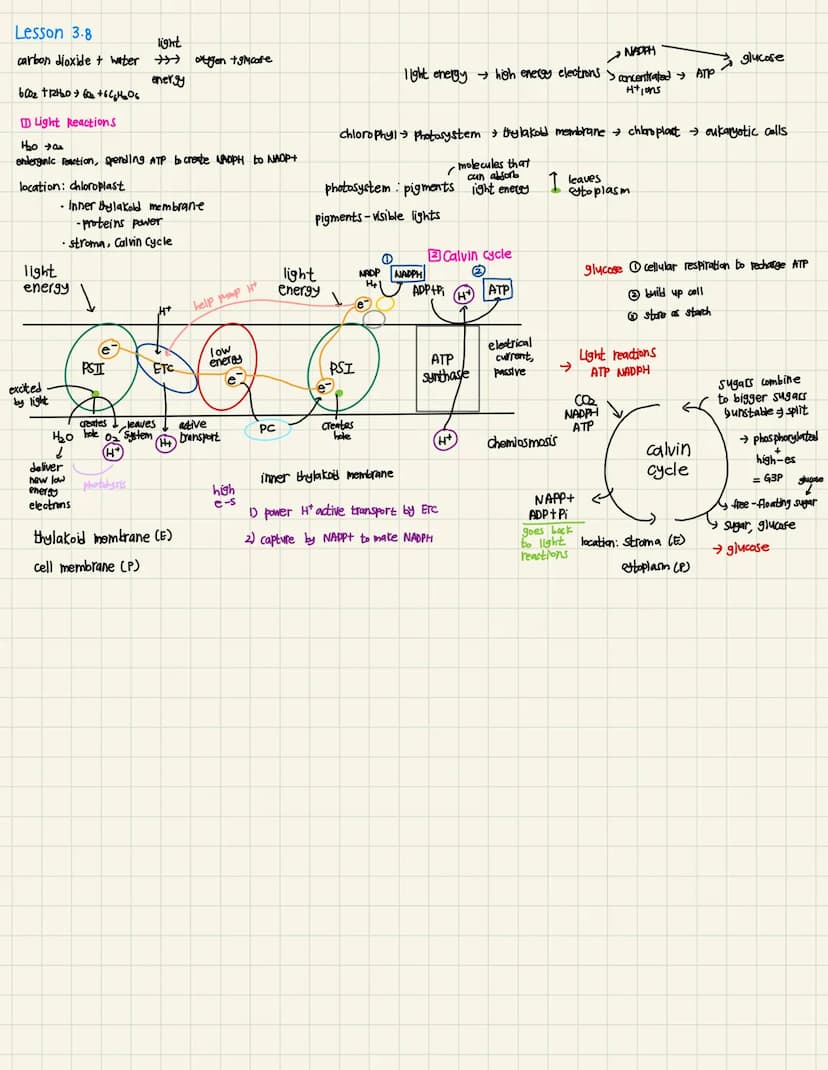 Lesson 3.8
light
carbon dioxide + water →→→ oxygen + glucose
energy
6CO2 + 12H2O → 6O2 + 6C6H12O6
light energy → high energy electrons
NADPH
concentrated → ATP
H+ ions
glucose
① Light Reactions
H2O → O2
endergonic reaction, spending ATP to create NADPH to NADP+
location: chloroplast
· Inner thylakoid membrane
- proteins power
· stroma, Calvin Cycle
chlorophyll → photosystem → thylakoid membrane → chloroplast → eukaryotic cells
molecules that
can absorb
photosystem : pigments light energy
↑ leaves
cytoplasm
pigments - visible lights
light
energy
H+
help pump H+
light
energy
①
NADP
H+
NADPH
② Calvin Cycle
②
ADP+Pi
H+
ATP
e-
PSII
ETC
low
energy
e-
e-
PSI
e-
ATP
synthase
electrical
current,
passive
excited
by light
creates
hole
H2O
O2
leaves
system
H+
photolysis
H+
active
transport
PC
creates
hole
H+
chemiosmosis
deliver
new low
energy
electrons
inner thylakoid membrane
high
e-s
1) power H+ active transport by ETC
2) capture by NADP+ to make NADPH
thylakoid membrane (E)
cell membrane (P)
glucose ① cellular respiration to recharge ATP
② build up cell
③ store as starch
→ Light reactions
ATP NADPH
CO2
NADPH
ATP
calvin
cycle
sugars combine
to bigger sugars
(unstable → split
→ phosphorylated
+
high-es
= G3P
glucose
→ free-floating sugar
→ sugar, glucose
→ glucose
NAPP+
ADP+Pi
goes back
to light
reactions
location: stroma (E)
cytoplasm (P)